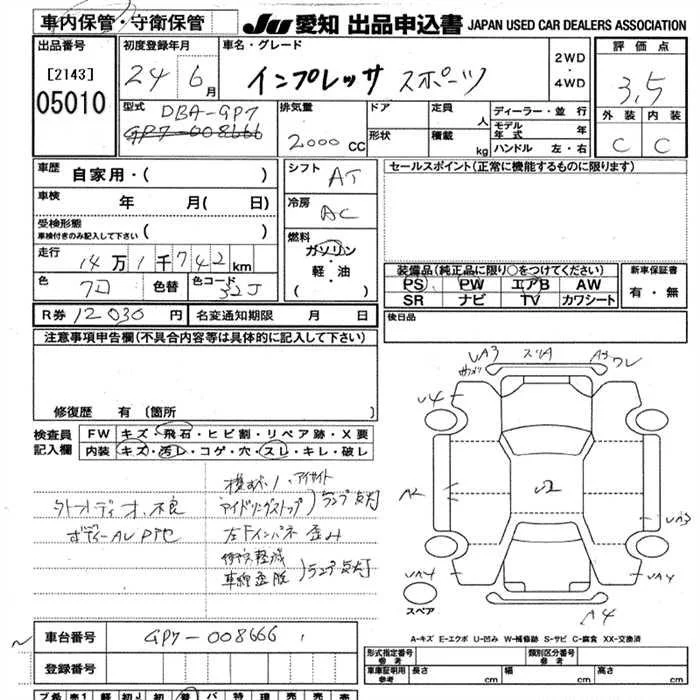 車内保管・守衛保管
JU 愛知 出品申込書 JAPAN USED CAR DEALERS ASSOCIATION
出品番号
[2143]
05010
初度登録年月
24 6月
車名・グレード
インプレッサ スポーツ
2WD
・
4WD
評価点
3.5
外装 内装
C C
型式
DBA-GP7
GP7-008666
排気量
2000 CC
ドア
形状
定員 人
積載 kg
ディーラー・並行
モデル年式 年
ハンドル 左・右
車歴
自家用・( )
車検
年 月( 日)
受検形態
車検付きのみ記入して下さい ( )
走行
14万1千742km
色
色替
色コード
32J
シフト
AT
冷房
AC
燃料
ガソリン
・
軽・油
( )
セールスポイント(正常に機能するものに限ります)
装備品(純正品に限り○をつけてください)
PS PW エアB AW
SR ナビ TV カワシート
新車保証書
有・無
R券 12030円
名変通知期限 月 日
後日品
注意事項申告欄(不具合内容等は具体的に記入して下さい)
修復歴 有 〔箇所 〕
検査員
記入欄
FW キズ・飛石・ヒビ割・リペア跡・X要
内装 キズ・汚レ・コゲ・穴・スレ・キレ・破レ
アイサイト
アイドリングストップ
ランプ点灯
左下インパネ歪み
衝突軽減
車線逸脱
ランプ点灯
UA3 スリA
U4
A2
U2
UA3
UA4
UA4
A4
スペア
A-キズ E-エクボ U-凹み W-補修跡 S-サビ C-腐食 XX-交換済
車台番号
GP7-008666
登録番号
形式指定番号
参考
類別区分番号
参考
車庫証明用
参考
長さ cm
幅 cm
高さ cm